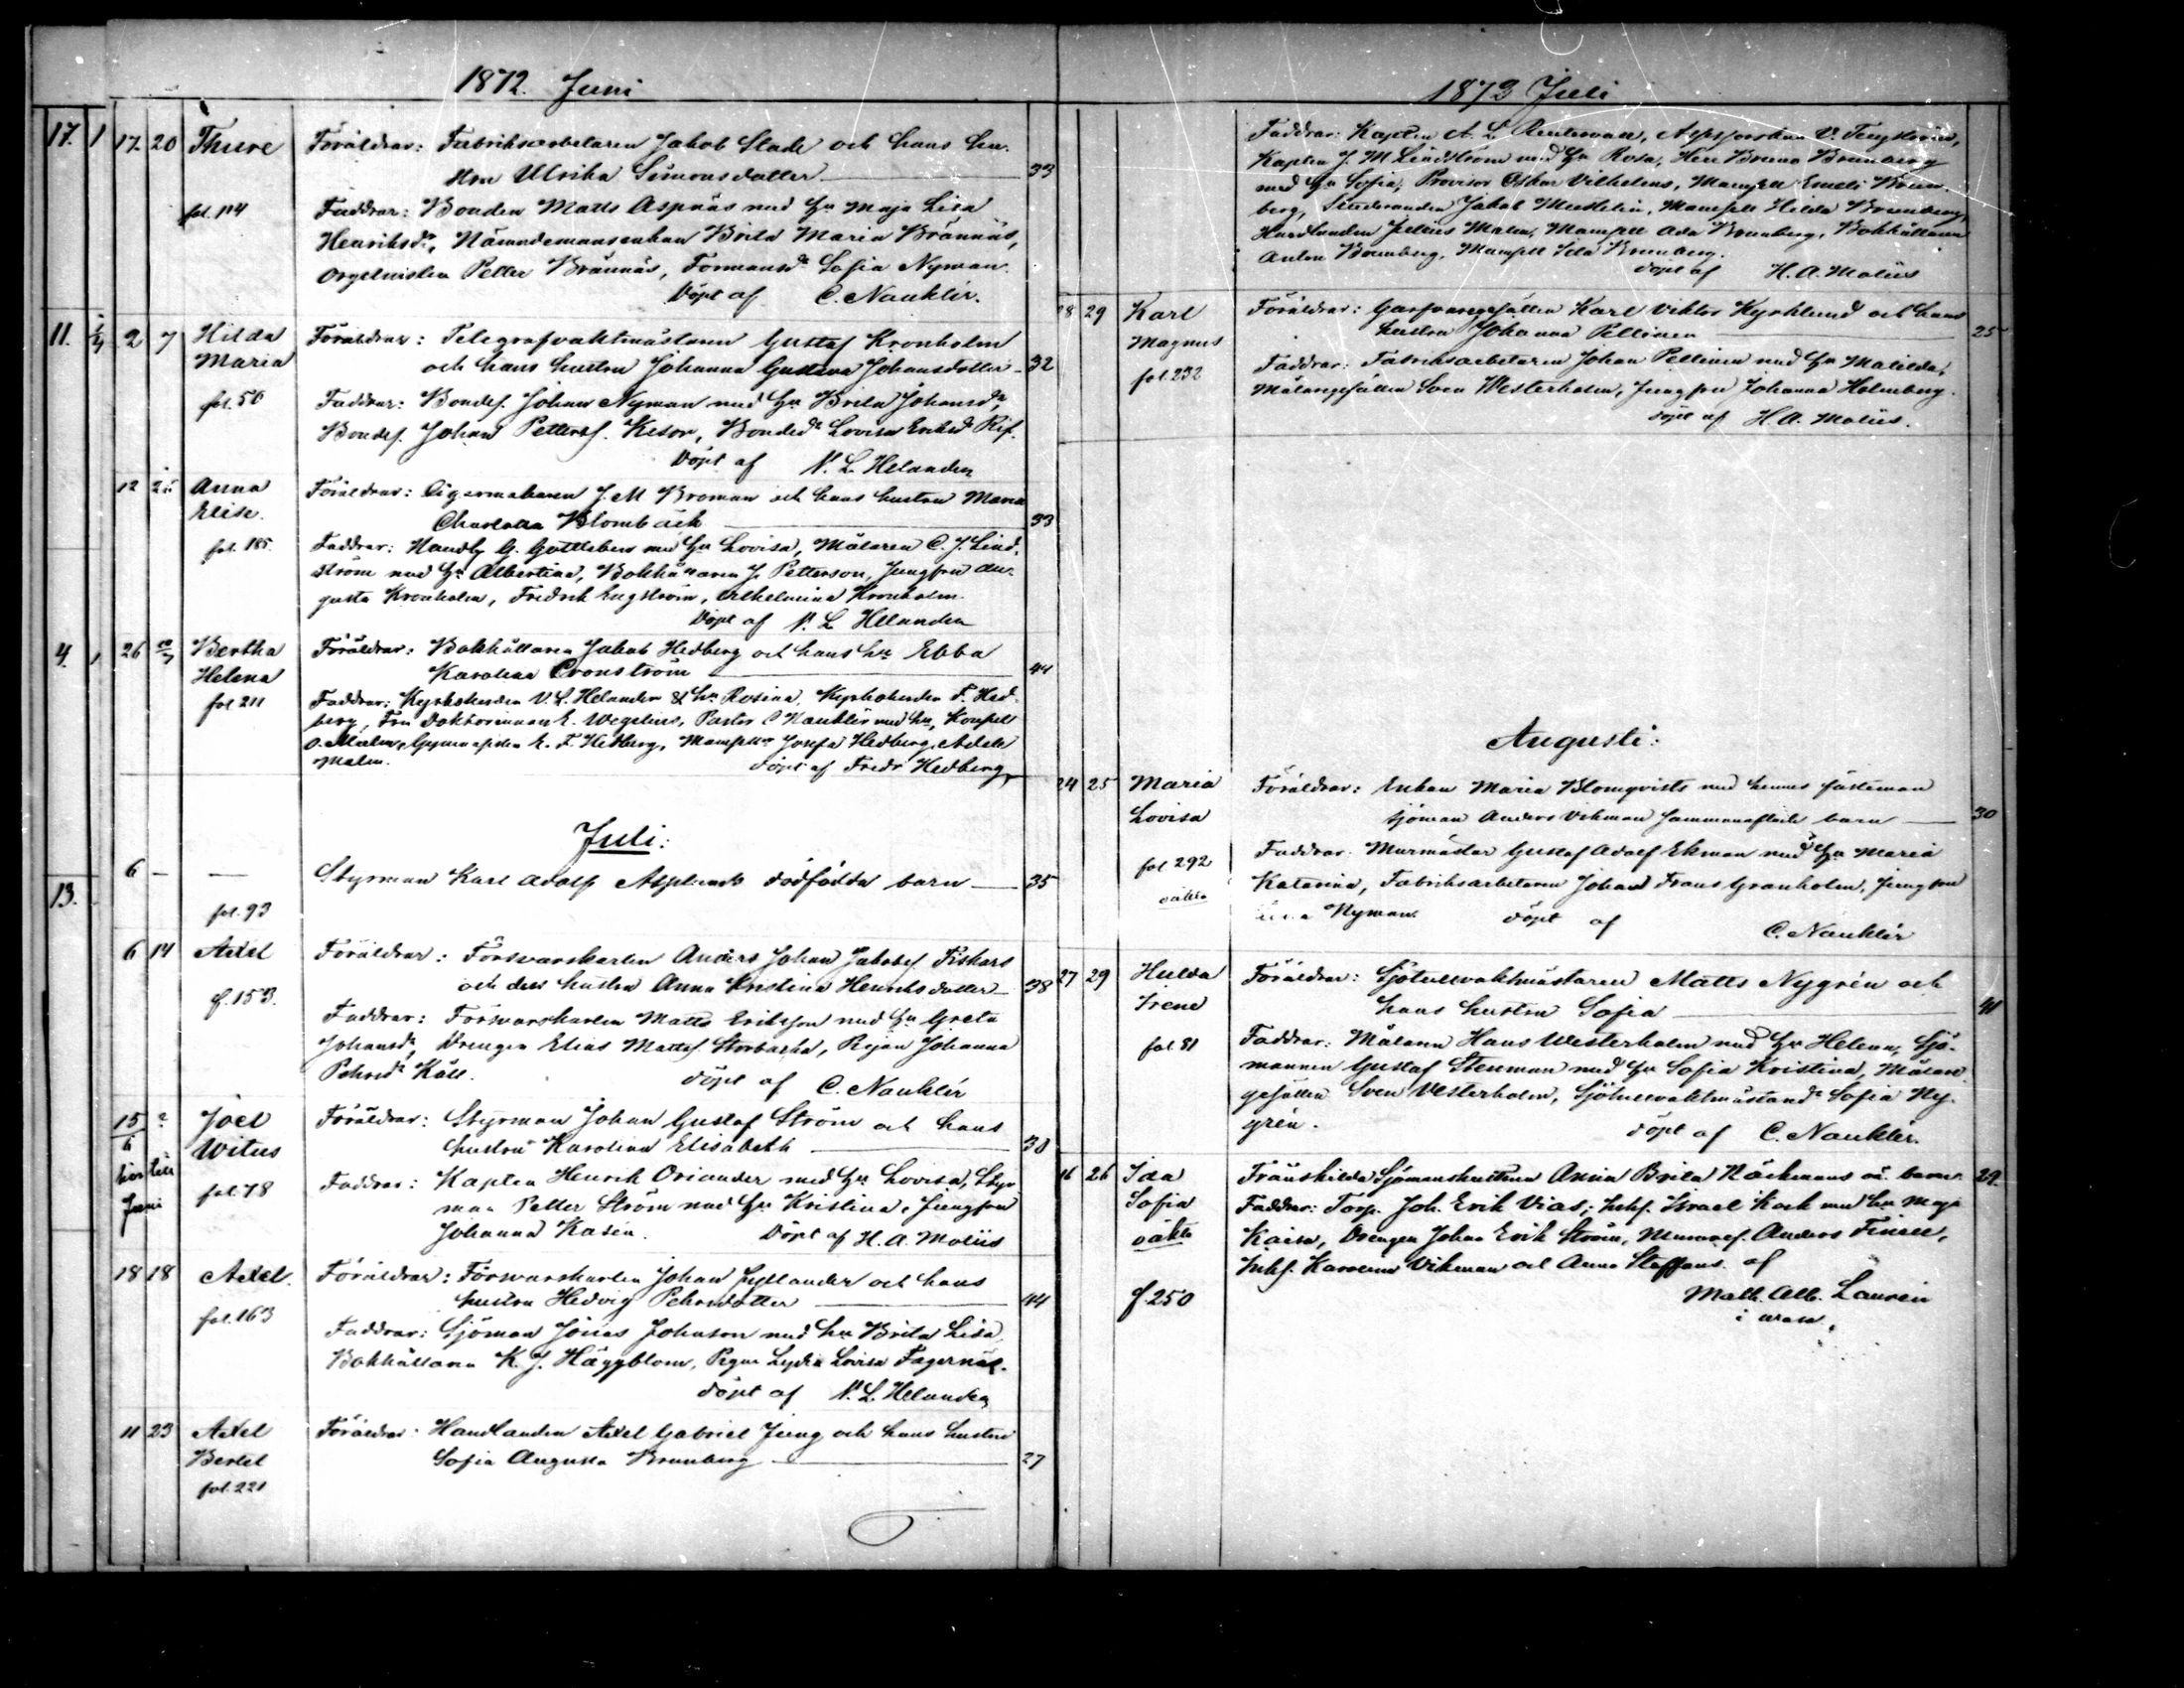 1872. Juni
17. 1 17. 20 Thure Föräldrar: Fabriksarbetaren Jakob Stade och hans hu-
stru Ulrika Simonsdotter 33
fol. 114 Faddrar: Bonden Matts Aspnäs med Hu Maja Lisa
Henriksdr, Nämndemansenkan Brita Maria Brännäs,
Orgelnisten Petter Brännäs, Formansdr Sofia Nyman.
Döpt af C. Nauklér.
11. 2 7 Hilda Föräldrar: Telegrafvaktmästaren Gustaf Kronholm
Maria och hans hustru Johanna Gustava Johansdotter 32
fol. 56 Faddrar: Bondes. Johan Nyman med Hu Brita Johansdr,
Bondes. Johan Petterss. Kesor, Bondedr Lovisa Eriksd Rif.
Döpt af V. L. Helander
12 25 Anna Föräldrar: Cigarmakaren J. M Broman och hans hustru Maria
Elise. Charlotta Blombäck 33
fol. 185. Faddrar: Handl. G. Gottleben med Hu Lovisa, Målaren C. J. Lind-
ström med Hu Albertina, Bokhållaren J. Petterson, Jungfru Au-
gusta Kronholm, Fredrik Engström, Vilhelmina Kronholm.
Döpt af V. L. Helander
4. 1 26 Bertha Föräldrar: Bokhållaren Jakob Hedberg och hans hu Ebba
Helena Karolina Cronström 44
fol 211 Faddrar: Kyrkoherden V. L. Helander & hu Rosina, Kyrkoherden F. Hed-
berg, Fru Doktorinnan E. Wegelius, Pastor C Nauklér med hu, Konsuln
O. Malm, Gymnasisten E. F. Hedberg, Mamseller Josefa Hedberg, Adele
Malm. döpt af Fredr Hedberg
Juli:
13. 6 — — Styrman Karl Adolf Asplunds dödfödda barn — 35
fol. 93
6 14 Axel Föräldrar: Försvarskarlen Anders Johan Jakobss. Fiskars
och dess hustru Anna Kristina Henriksdotter 38
f. 153. Faddrar: Försvarskarlen Matts Eriksson med Hu Greta
Johansdr, Drengen Elias Mattss. Storbacka, Pigan Johanna
Pehrsdr Käll. döpt af C. Nauklér
15/6 ? Joel Föräldrar: Styrman Johan Gustaf Ström och hans
Witus hustru Karolina Elisabeth 30
hör till Juni fol. 78 Faddrar: Kapten Henrik Oriander med Hu Lovisa, Styr-
man Petter Ström med Hu Kristina, Jungfru
Johanna Kasén. Döpt af H. A. Moliis
18 18 Axel. Föräldrar: Försvarskarlen Johan Jyllander och hans
hustru Hedvig Pehrsdotter 44
fol. 163 Faddrar: Sjöman Jonas Johnson med hu Brita Lisa,
Bokhållaren K. J. Häggblom, Pigan Lydia Lovisa Fagernäs.
döpt af V. L. Helander
11 23 Axel Föräldrar: Handlanden Axel Gabriel Jung och hans hustru
Bertel Sofia Augusta Brunberg 27
fol. 221
1872 Juli
Faddrar: Kapten A. L. V. Tengström,
Kapten J. M. Lindström med Hu Rosa, Herr Bruno Brunberg
med Hu Sofia, Provisor Oskar Vilhelms, Mamsell Emeli Brun-
berg, Studeranden Jakob Mamsell Hilda Brunberg,
Handlanden Julius Malm, Mamsell Ada Brunberg, Bokhållaren
Anton Brunberg, Mamsell Brunberg.
döpt af H. A. Moliis
28 29 Karl Föräldrar: Garfvaregesällen Karl Viktor Kyrklund och hans
Magnus hustru Johanna Pellinen 25
fol. 232 Faddrar: Fabriksarbetaren Johan Pellinen med Hu Matilda,
Målaregesällen Sven Westerholm, Jungfru Johanna Holmberg.
döpt af H. A. Moliis.
Augusti:
24 25 Maria Föräldrar: Enkan Maria Blomqvists med hennes fästeman
Lovisa sjöman Anders Vikman sammanaflade barn 30
fol 292 Faddrar: Murmästar Gustaf Adolf Ekman med Hu Maria
oäkta Katarina, Fabriksarbetaren Johan Frans Granholm, Jungfru
Nyman. döpt af C. Nauklér
27 29 Hulda Föräldrar: Sjötullvaktmästaren Matts Nygrén och
Irene hans hustru Sofia 41
fol 81 Faddrar: Målaren Hans Westerholm med Hu Helena, Sjö-
mannen Gustaf Stenman med Hu Sofia Kristina, Målare
gesällen Sven Vesterholm, Sjötullvaktmästaredr Sofia Ny-
grén. döpt af C. Nauklér.
16 26 Ida Frånskilda Sjömanshustrun Anna Brita Näckmans oä. barn. 29.
Sofia Faddrar: Torp. Joh. Erik Vias; Inhs. Israel Kack med hu Maja
oäkta Kaisa, Drengen Johan Erik Ström, Anders Finell,
Inhs. Karolina Vikman och Anna Staffans. af
f. 250 Math. Alb. Laurén
i